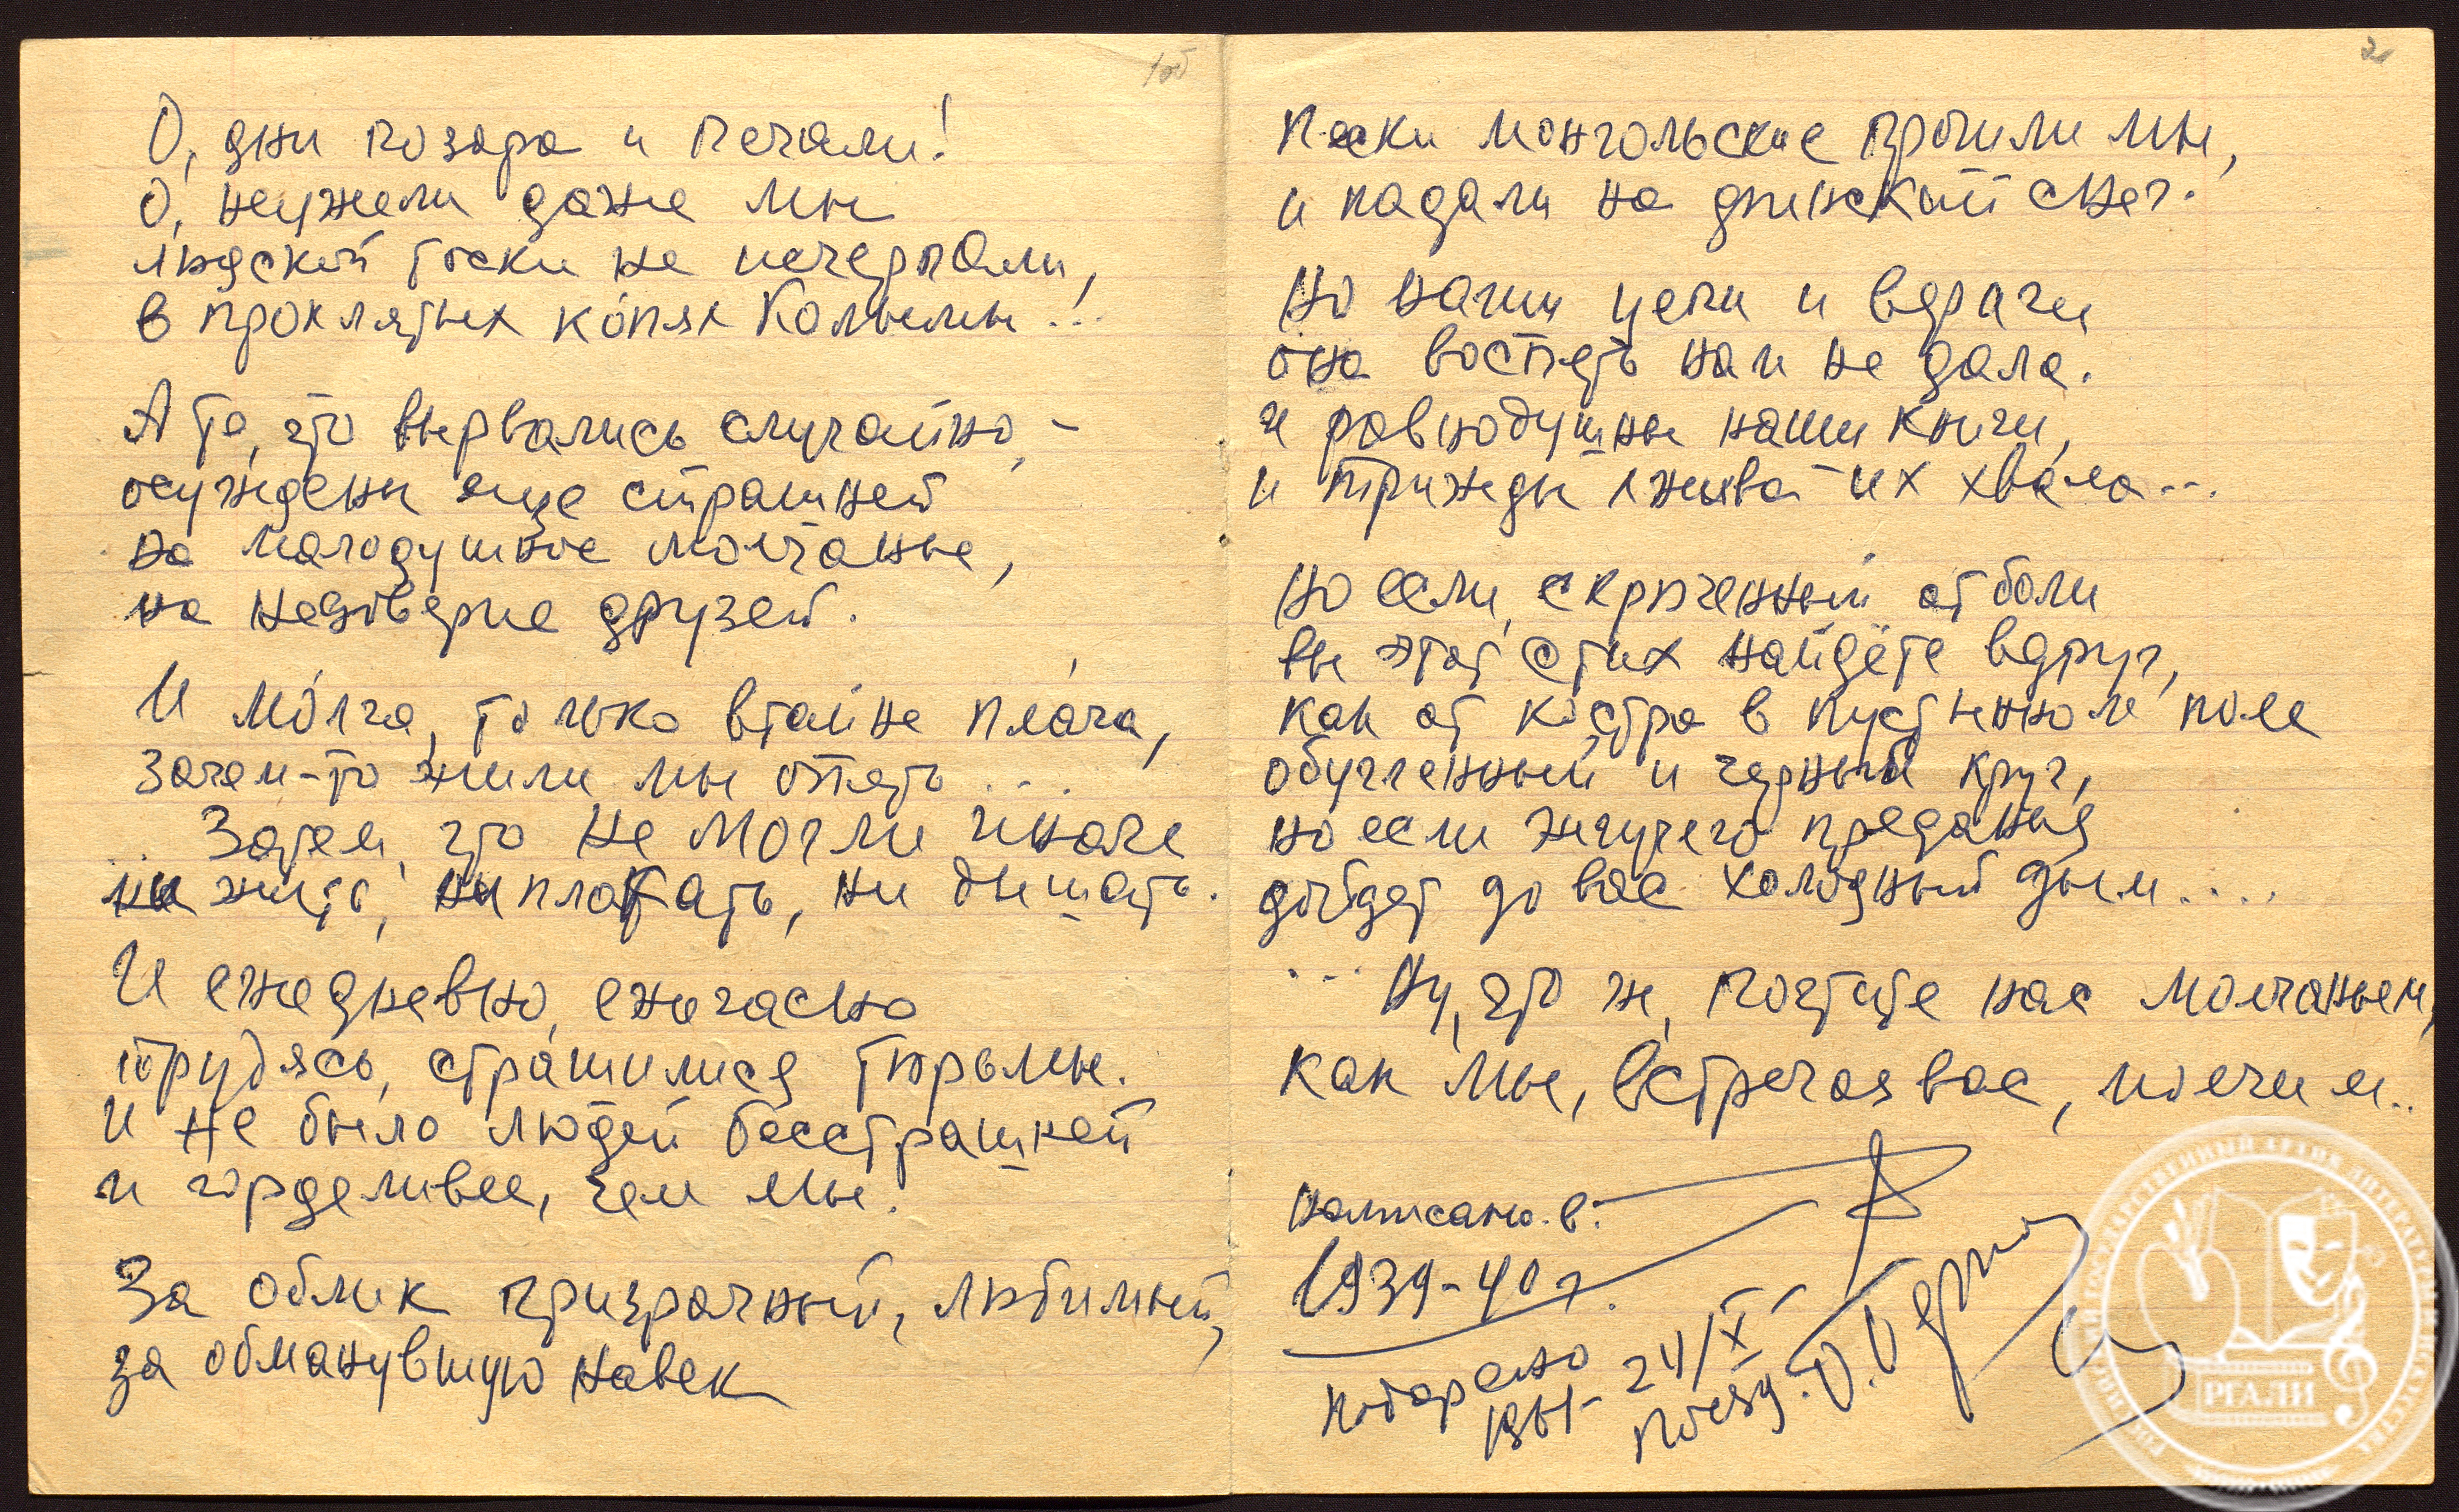 1об
О, дни позора и печали!
О, неужели даже мы
людской тоски не исчерпали,
в проклятых ко́пях Колымы!..
А те, что вырвались случайно, –
осуждены еще страшней
на малодушное молчанье,
на недоверие друзей.
И мо́лча, только втайне пла́ча,
зачем-то жили мы опять ...
... Затем, что не могли иначе
ни жить, ни плакать, ни дышать.
И ежедневно, ежечасно
трудясь, страшилися тюрьмы.
И не было людей бесстрашней
и горделивее, чем мы!
За облик призрачный, любимый,
за обманувшую навек
2
Пески монгольские прошли мы,
и падали на финский снег.
Но наши цепи и вериги
она воспеть нам не дала.
и равнодушны наши книги,
и трижды лжива их хвала...
Но если, скрюченный от боли
вы этот стих найдёте вдруг,
как от костра в пустынном поле
обугленный и черный круг,
но если жгучего преданья
дойдет до вас холодный дым....
... Ну, что ж, почтите нас молчаньем,
как мы, встречая вас, молчим..
Написано в.
1939-40 г.
Подарено 24/X
1961 поезд. О. Берггольц
РГАЛИ
РОССИЙСКИЙ ГОСУДАРСТВЕННЫЙ АРХИВ ЛИТЕРАТУРЫ И ИСКУССТВА